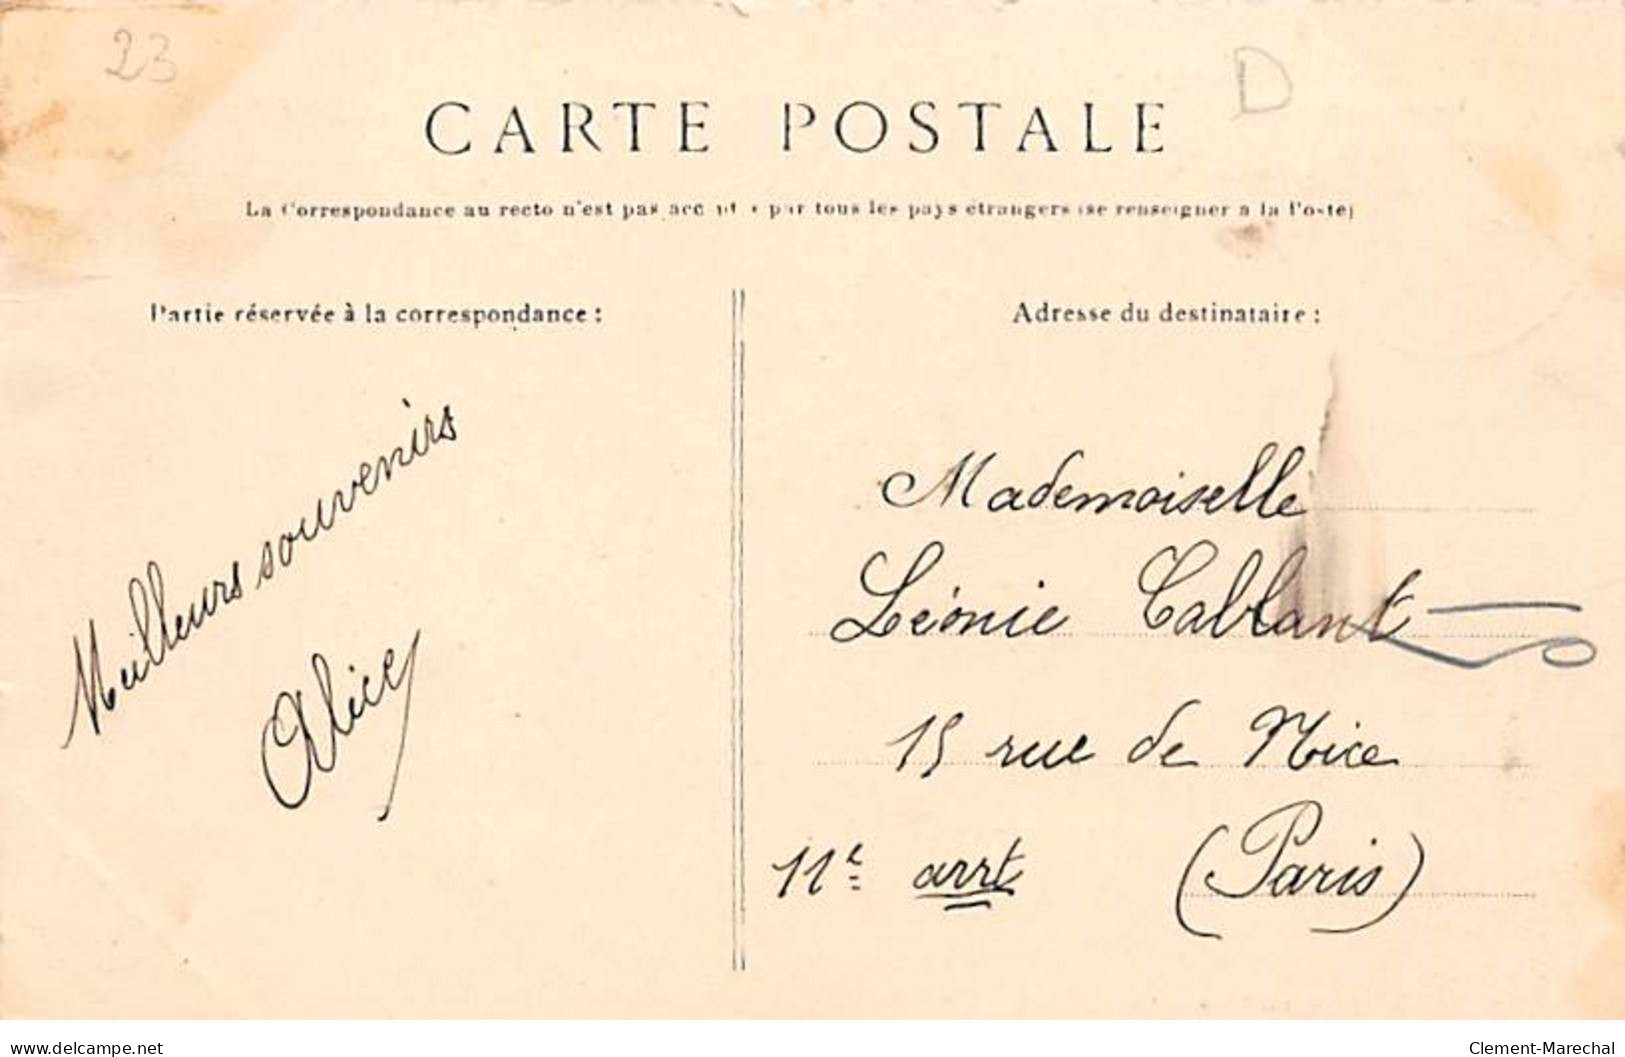 23
D
CARTE POSTALE
La Correspondance au recto n'est pas acc par tous les pays étrangers (se renseigner a la Poste)
Partie réservée à la correspondance :
Meilleurs souvenirs
Alice
Adresse du destinataire :
Mademoiselle
Léonie Cablant
15 rue de Nice
11e arrt (Paris)
delcampe.net
Clement-Marechal